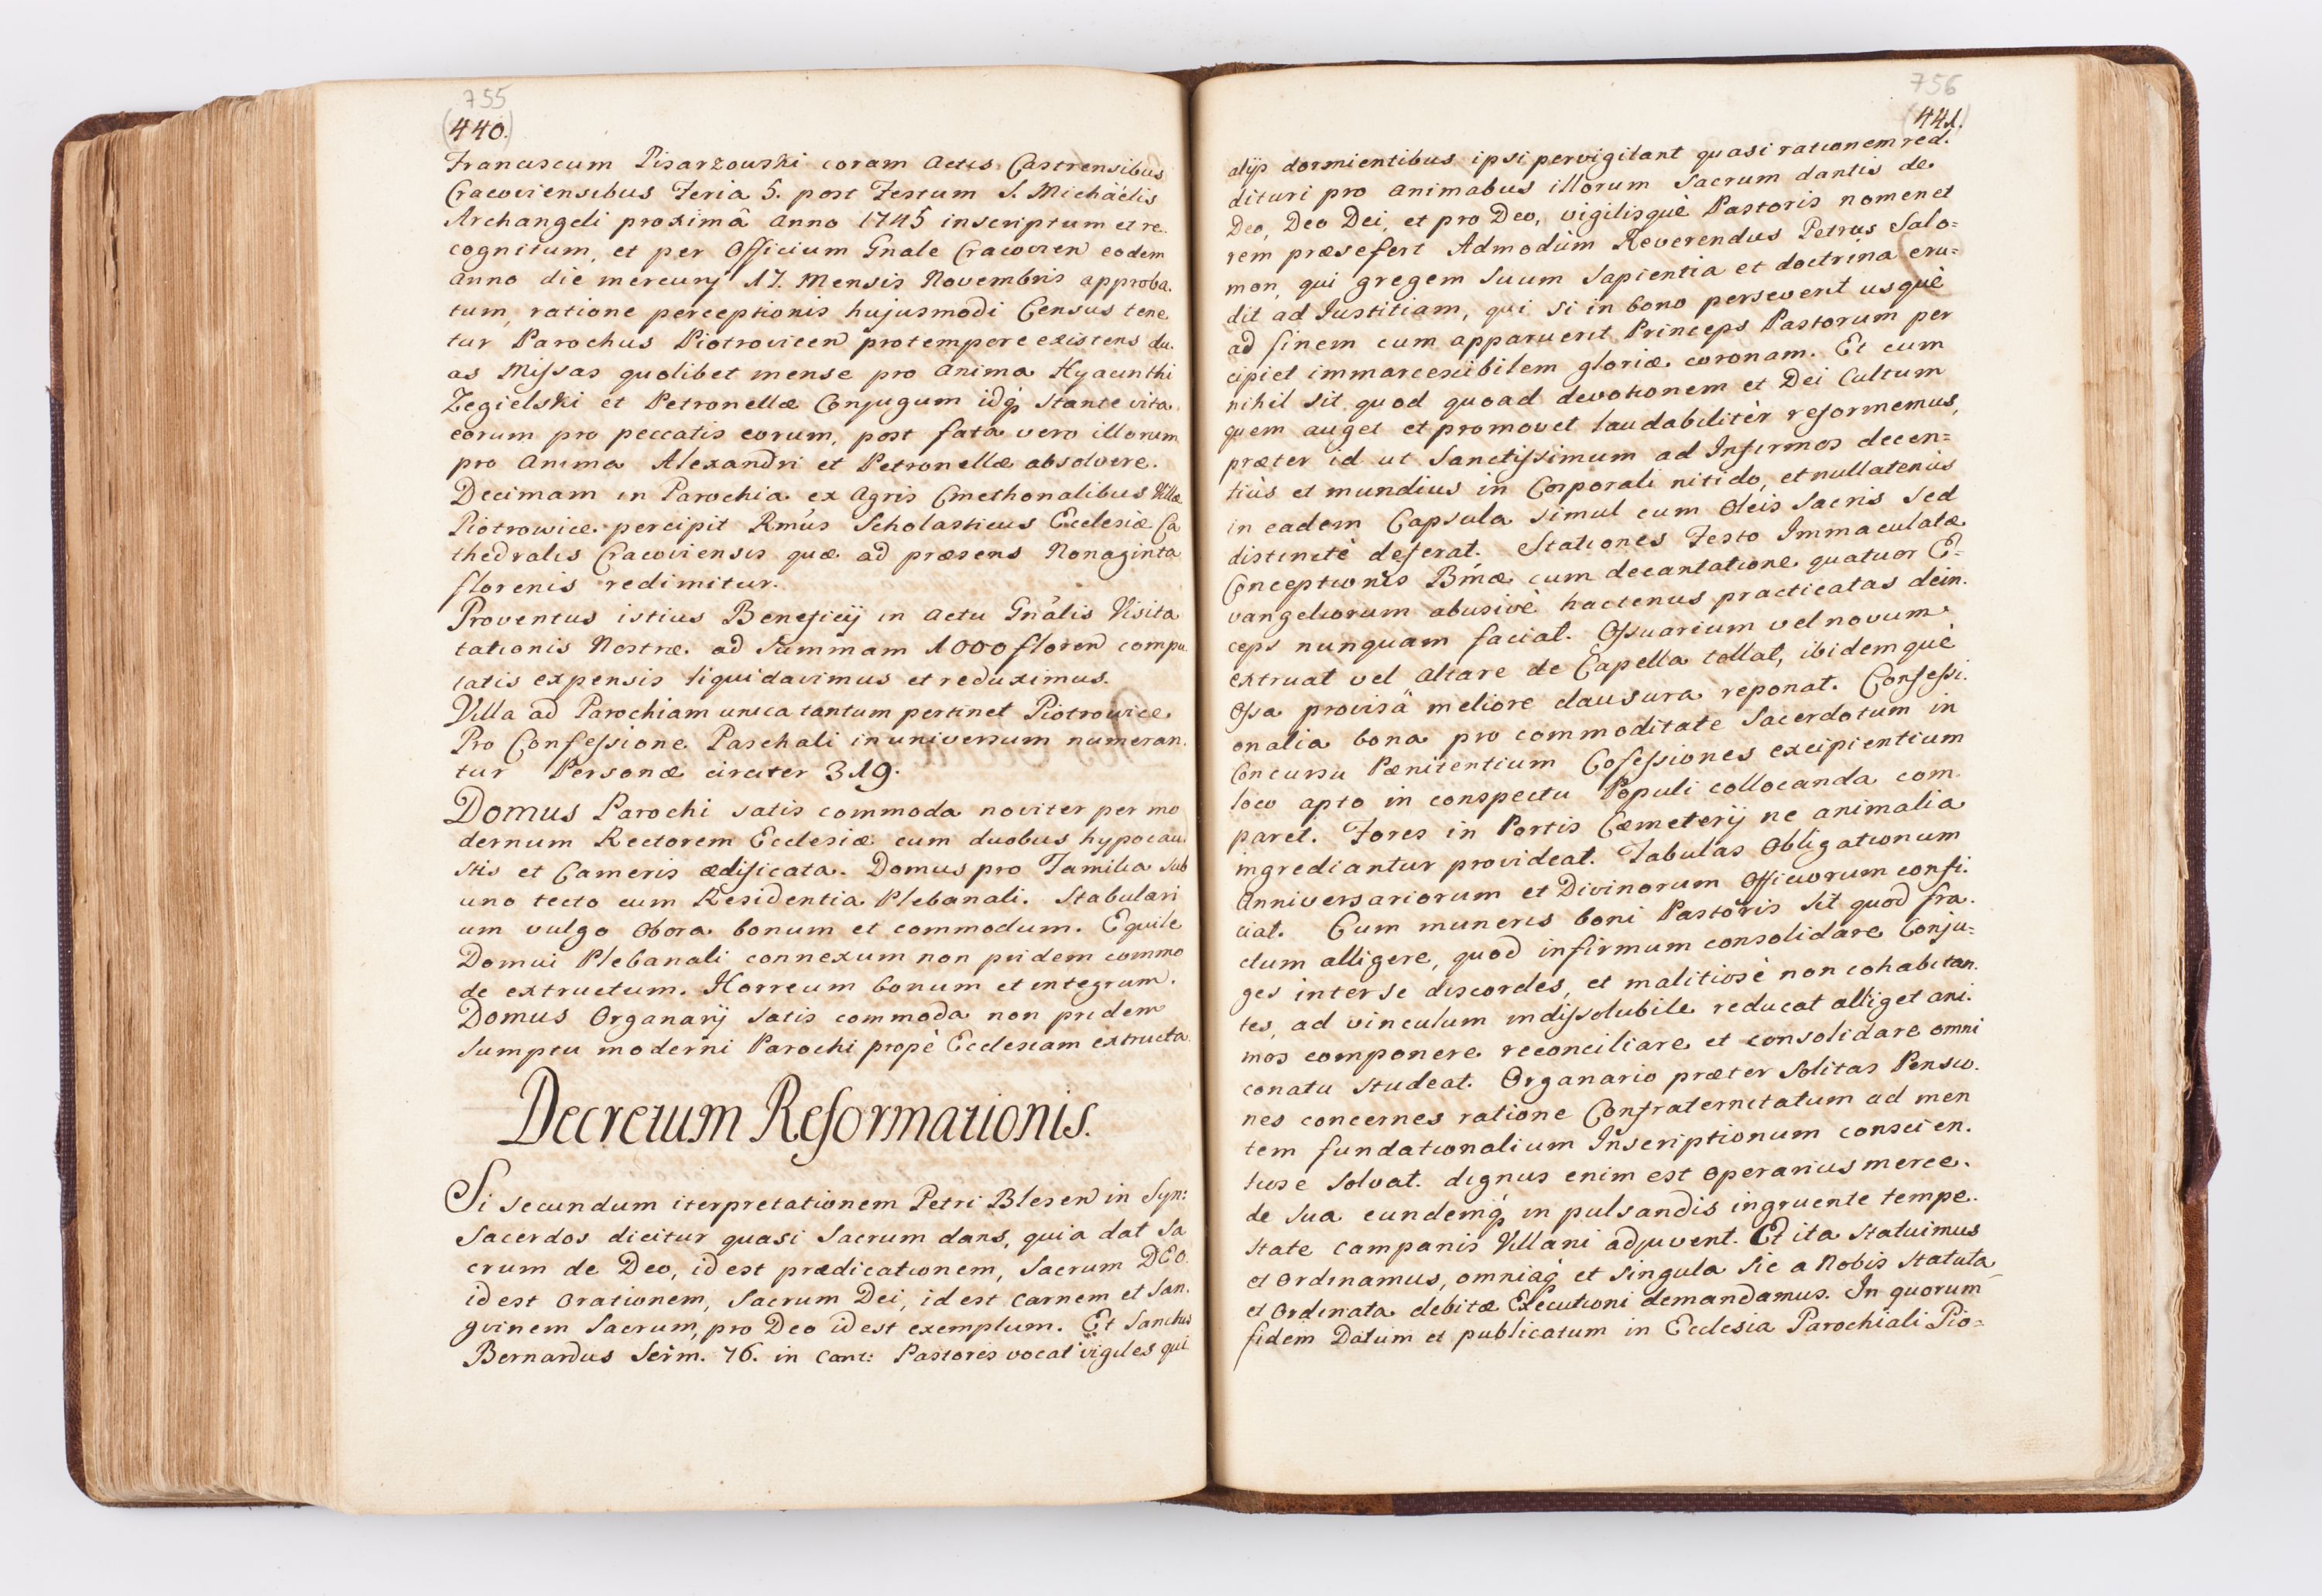 755
(440.)
Franciscum Pisarzowski coram Actis Castrensibus
Cracoviensibus Feria 5. post Festum S. Michäelis
Archangeli proximâ Anno 1745 inscriptum et re-
cognitum, et per Officium Gnale Cracovien eodem
Anno die mercurij 17. Mensis Novembris approba-
tum, ratione perceptionis hujusmodi Census tene-
tur Parochus Piotrovicen protempore existens du-
as Missas quolibet mense pro Anima Hyacinthi
Zegielski et Petronellæ Conjugum idq́ stante vita
eorum pro peccatis eorum, post fata vero illorum
pro Anima Alexandri et Petronellæ absolvere.
Decimam in Parochia ex Agris Cmethonalibus Villæ
Piotrowice percipit Rmús Scholasticus Ecclesiæ Ca
thedralis Cracoviensis quæ ad præsens Nonaginta
florenis redimitur.
Proventus istius Beneficij in Actu Gnális Visita
tationis Nostræ ad Summam 1000 floren compu
tatis expensis liquidavimus et reduximus.
Villa ad Parochiam unica tantum pertinet Piotrowice
Pro Confessione Paschali in universum numeran-
tur Personæ circiter 319.
Domus Parochi satis commoda noviter per mo
dernum Rectorem Ecclesiæ cum duobus hypocau-
stis et Cameris ædificata. Domus pro Familia sub
uno tecto cum Residentia Plebanali. Stabulari
um vulgo Obora bonum et commodum. Equile
Domui Plebanali connexum non pridem commo
de extructum. Horreum bonum et integrum.
Domus Organarij satis commoda non pridem
sumptu moderni Parochi propè Ecclesiam extructa.
Decretum Reformationis.
Si secundum iterpretationem Petri Blesen in Syn:
Sacerdos dicitur quasi Sacrum dans, quia dat Sa
crum de Deo, id est prædicationem, Sacrum DEO
id est Orationem, Sacrum Dei, id est Carnem et San-
gvinem Sacrum, pro Deo id est exemplum. Et Sanctus
Bernardus Serm. 76. in Cant: Pastores vocat vigiles qui
756
(441.)
alijs dormientibus ipsi pervigilant quasi rationem red-
dituri pro animabus illorum Sacrum dantis de
Deo, Deo Dei, et pro Deo, vigilisquè Pastoris nomen et
rem præsefert Admodùm Reverendus Petrus Salo=
mon, qui gregem suum Sapientia et doctrina eru=
dit ad Justitiam, qui si in bono perseverit usquè
ad finem cum apparuerit Princeps Pastorum per
cipiet immarcescibilem gloriæ coronam. Et cum
nihil sit quod quoad devotionem et Dei Cultum
quem auget et promovet laudabilitèr reformemus,
præter id ut Sanctissimum ad Infirmos decen=
tiùs et mundius in Corporali nitido, et nullatenùs
in eadem Capsula simul cum Oleis Sacris Sed
distinctè deferat. Stationes Festo Immaculatæ
Conceptionis Bmæ cum decantatione quatuor E=
vangeliorum abusivè hactenus practicatas dein-
ceps nunquam faciat. Ossuarium vel novum
extruat vel Altare de Capella tollat, ibidemquè
Ossa provisâ meliore clausura reponat. Confessi-
onalia bona pro commoditate Sacerdotum in
Concursu Pænitentium Cofessiones excipientium
loco apto in conspectu Populi collocanda com-
paret. Fores in Portis Cæmeterij ne animalia
ingrediantur provideat. Tabulas Obligationum
Anniversariorum et Divinorum Officiorum confi-
ciat. Cum muneris boni Pastoris sit quod fra-
ctum alligere, quod infirmum consolidare Conju=
ges inter se discordes, et malitiosè non cohabitan-
tes, ad vinculum indissolubile reducat alliget ani-
mos componere reconciliare et consolidare omni
conatu studeat. Organario præter solitas Pensio-
nes concernes ratione Confraternitatum ad men
tem fundationalium Inscriptionum conscien-
tiose solvat. dignus enim est Operarius merce-
de sua eundemq́ in pulsandis ingruente tempe-
state Campanis Villani adjuvent. Et ita statuimus
et Ordinamus, omniaq́ et singula sic a Nobis statuta
et Ordinata debitæ Executioni demandamus. In quorum
fidem Datum et publicatum in Ecclesia Parochiali Pio=